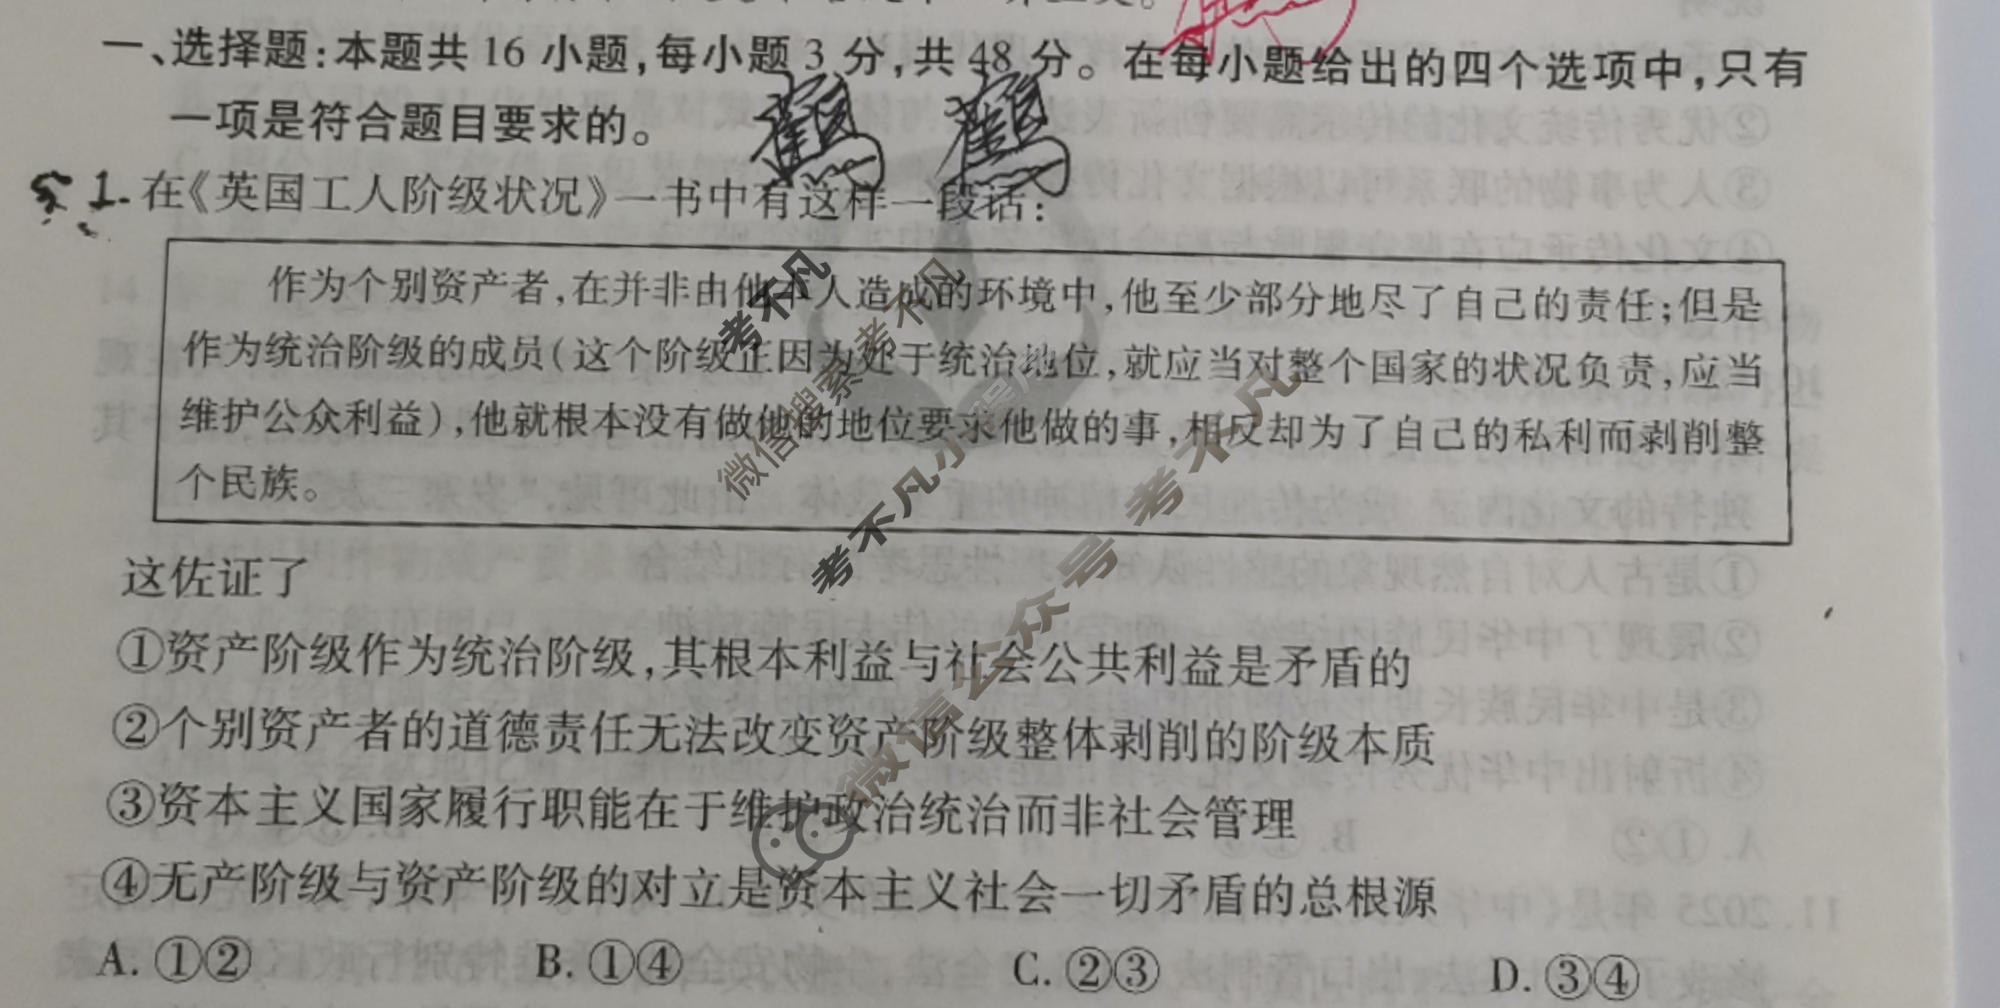 一、选择题:本题共 16 小题,每小题 3 分,共 48 分。在每小题给出的四个选项中,只有
一项是符合题目要求的。
1. 在《英国工人阶级状况》一书中有这样一段话:
作为个别资产者,在并非由他本人造成的环境中,他至少部分地尽了自己的责任;但是
作为统治阶级的成员(这个阶级正因为处于统治地位,就应当对整个国家的状况负责,应当
维护公众利益),他就根本没有做他的地位要求他做的事,相反却为了自己的私利而剥削整
个民族。
这佐证了
①资产阶级作为统治阶级,其根本利益与社会公共利益是矛盾的
②个别资产者的道德责任无法改变资产阶级整体剥削的阶级本质
③资本主义国家履行职能在于维护政治统治而非社会管理
④无产阶级与资产阶级的对立是资本主义社会一切矛盾的总根源
A. ①② B. ①④ C. ②③ D. ③④
考不凡
微信搜索 考不凡
考不凡小程序
微信公众号 考不凡